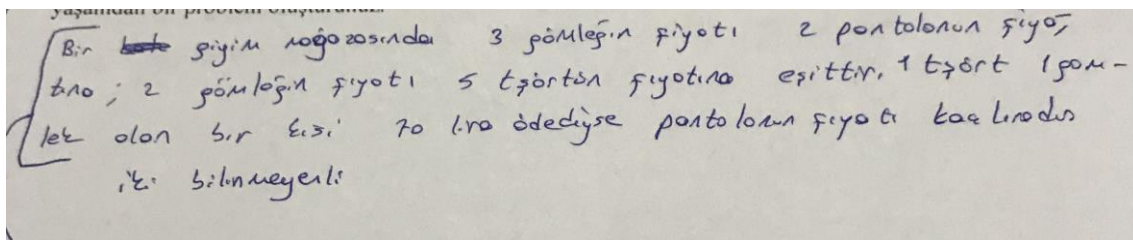 yaşamdan bir problem oluşturunuz.
Bir giyim mağazasında 3 gömleğin fiyatı 2 pantolonun fiya-
tına ; 2 gömleğin fiyatı 5 tşörtün fiyatına eşittir. 1 tşört 1 göm-
lek alan bir kişi 70 lira ödediyse pantolonun fiyatı kaç liradır
iki bilinmeyenli